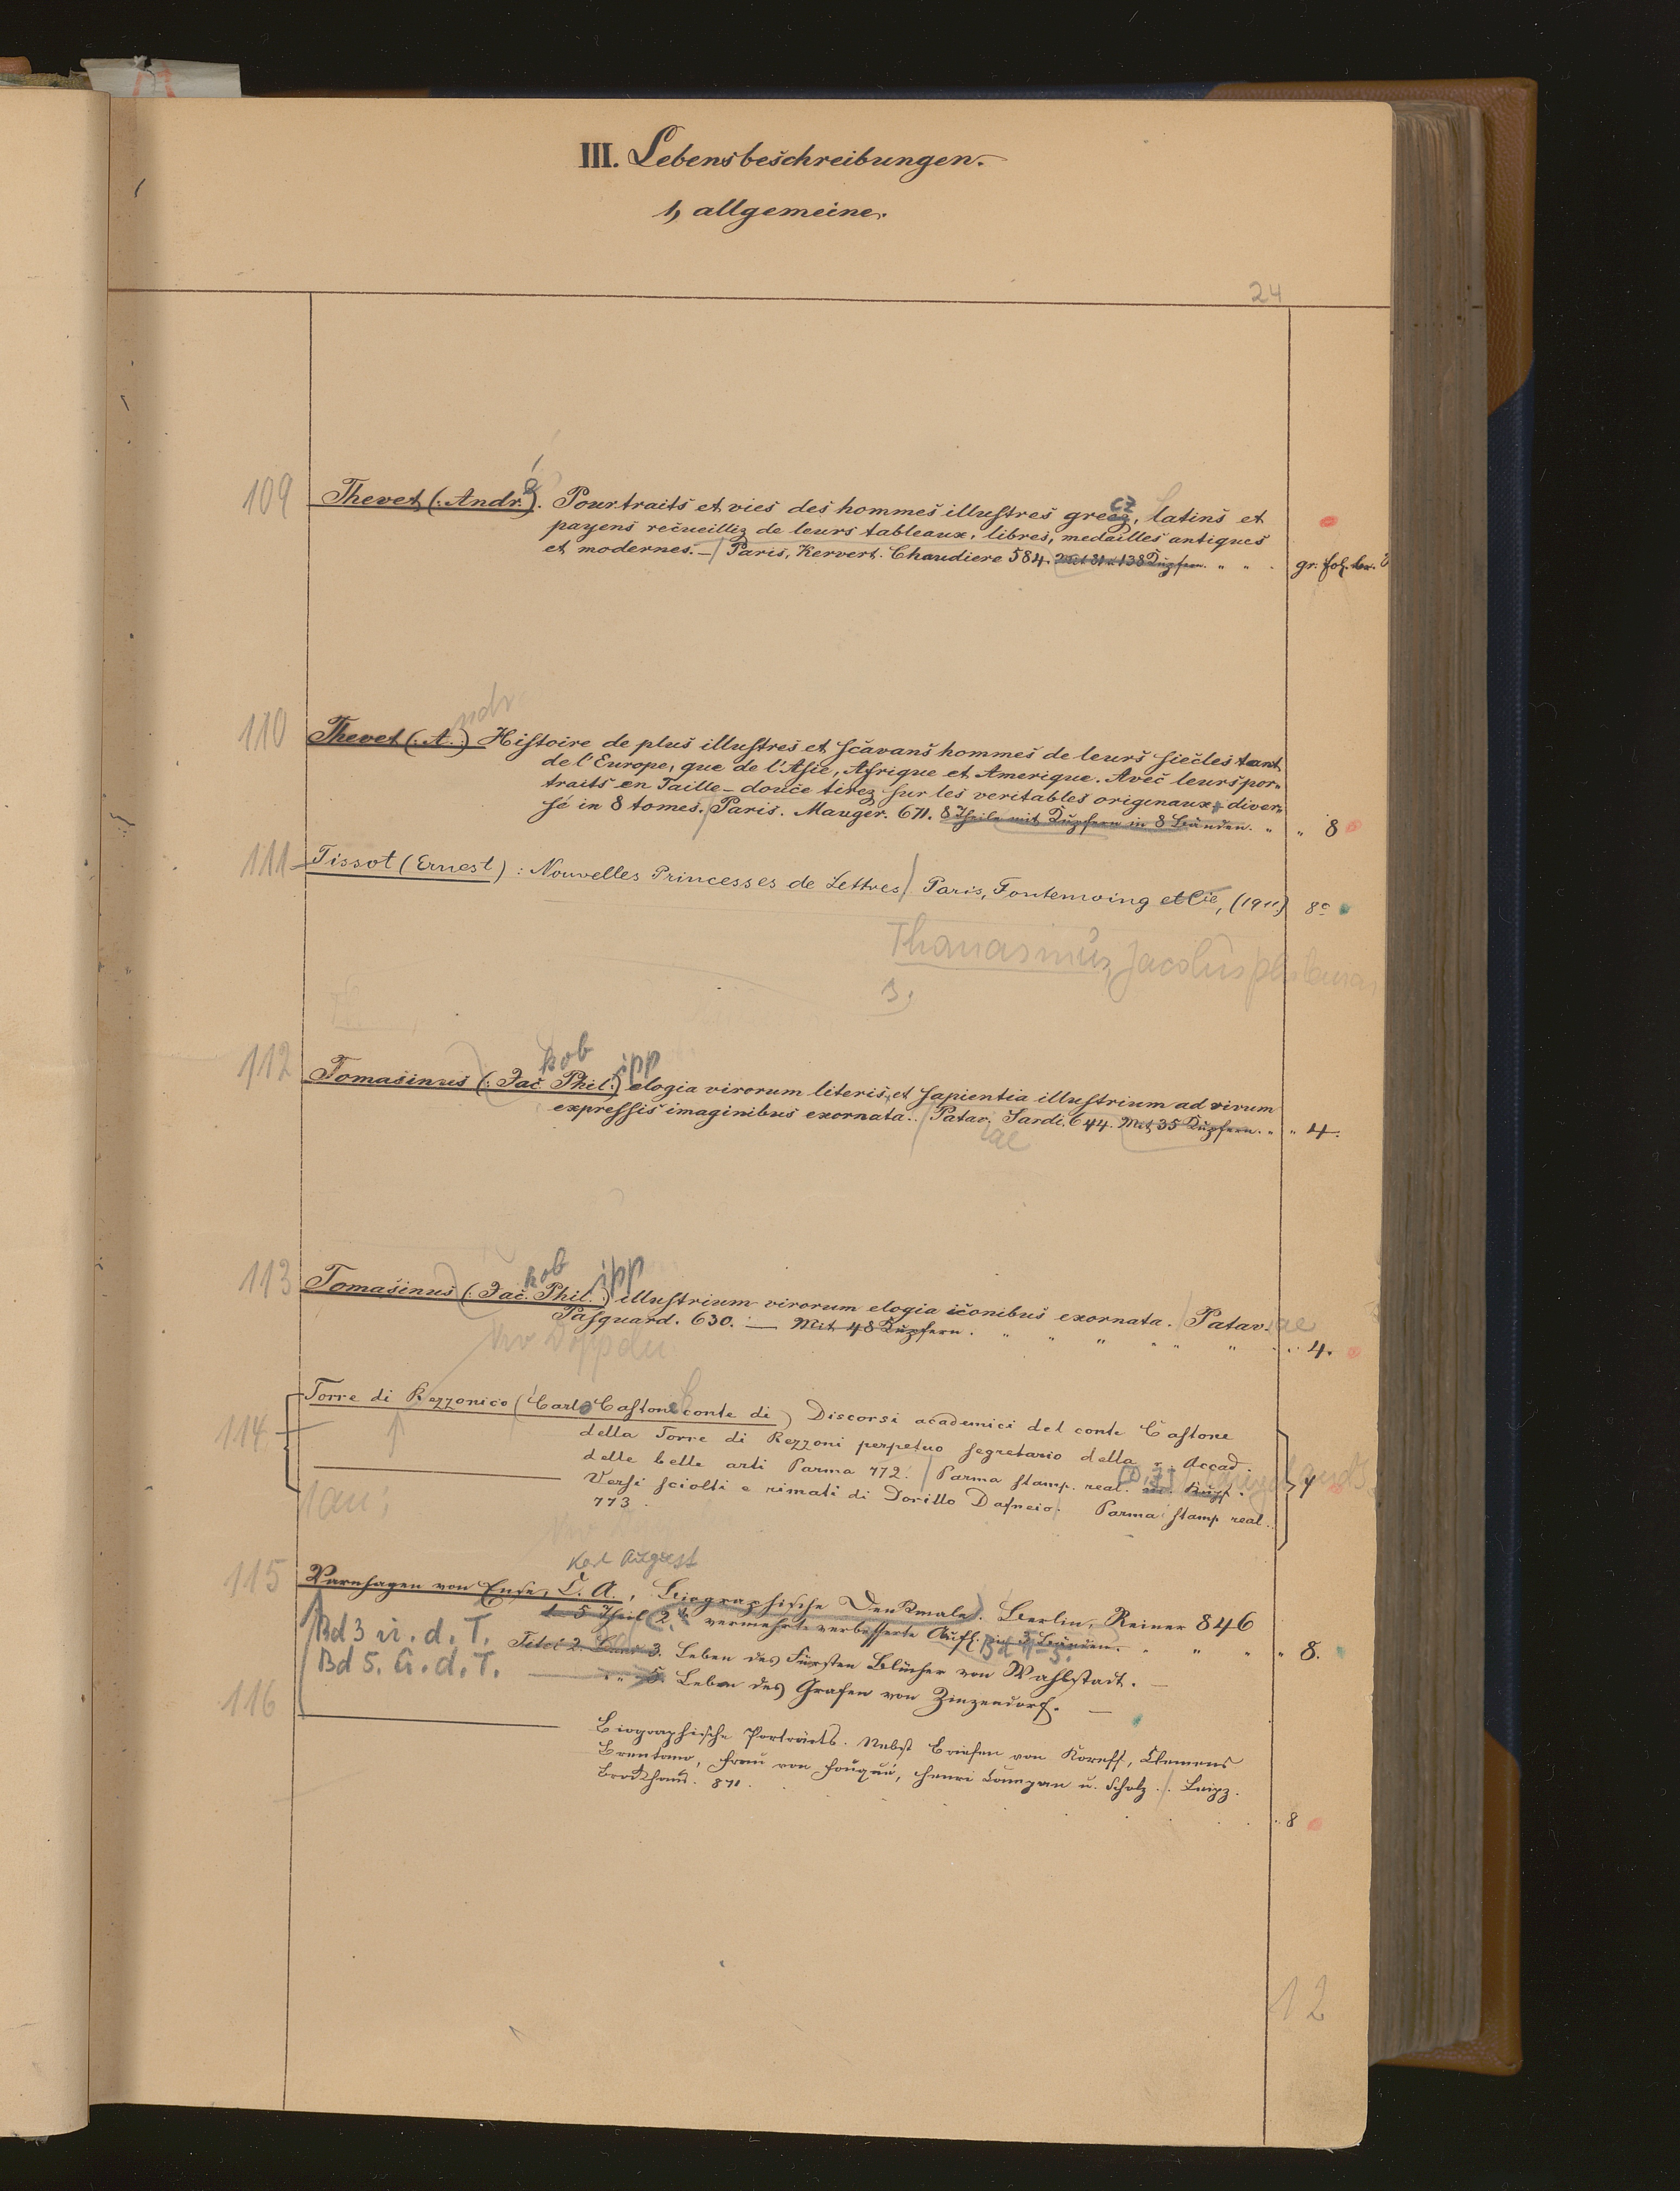 III. Lebensbeschreibungen.
1, allgemeine.
24
109 Thevet (: Andr. é). Pourtraits et vies des hommes illustres grecz, latins et
payens recueilliz de leurs tableaux, libres, medailles antiques
et modernes. — Paris, Kervert. Chaudiere 584. Mit 31 u 138 Kupfern. " " . gr. fol.
110 Thevet (: A. :) ndr Histoire de plus illustres et sçavans hommes de leurs siecles tant
de l'Europe, que de l'Asie, Afrique et Amerique. Avec leurs por„
traits en Taille-douce tirez sur les veritables originaux, diver„
sé in 8 tomes. Paris. Mauger. 671. 8 Theile mit Kupfern in 8 Bänden. " " 8
111 Tissot (Ernest) : Nouvelles Princesses de Lettres. Paris, Fontemoing et Cie, (1911) 8°
Jacobus
kob ipp
112 Tomasinus (: Jac. Phil. :) elogia virorum literis et sapientia illustrium ad vivum
expressis imaginibus exornata.. Patav. Sardi. 644. Mit 35 Kupfern. " " 4.
iae
kob ipp
113 Tomasinus (: Jac. Phil. :) illustrium virorum elogia iconibus exornata. Patav. iae
Pasquard. 630. — Mit 48 Kupfern. " " " " " " 4.
114 Torre di Rezzonico (Carlo Castone conte di) Discorsi academici del conte Castone
della Torre di Rezzoni perpetuo segretario della r. Accad.
delle belle arti Parma 772. Parma stamp. real. m. Kupf. 4
Versi sciolti e rimati di Dorillo Dafneio. Parma stamp real.
773.
Karl August
115 Varnhagen von Ense, C. A., Biographische Denkmale. Berlin, Reimer 846
1-5 Theil 2. te vermehrte verbesserte Aufl. in 5 Bänden. " " " " 8.
Bd 1-5.
Bd 3 u. d. T. Titel 2. Band 3. Leben des Fürsten Blücher von Wahlstadt. —
Bd 5. u. d. T. " " 5. Leben des Grafen von Zinzendorf. —
116 Biographische Porträts. Nebst Briefen von Koreff, Clemens
Brentano, Frau von Fouqué, Henri Campan u. Scholz. Leipz.
Brockhaus. 871. . . . . . . 8
12